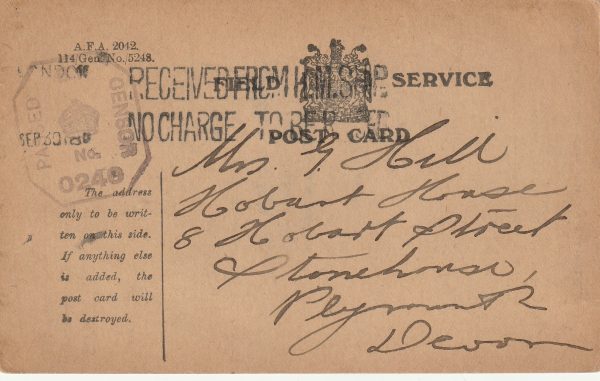 A.F.A. 2042.
114/Gen. No. 5248.
LONDON
SEP 30 18
PASSED CENSOR
No.
0240
RECEIVED FROM H.M. SHIP
NO CHARGE TO BE
FIELD SERVICE
POST CARD
The address
only to be writ-
ten on this side.
If anything else
is added, the
post card will
be destroyed.
Mrs. G. Hill
Hobart House
8 Hobart Street
Stonehouse,
Plymouth
Devon